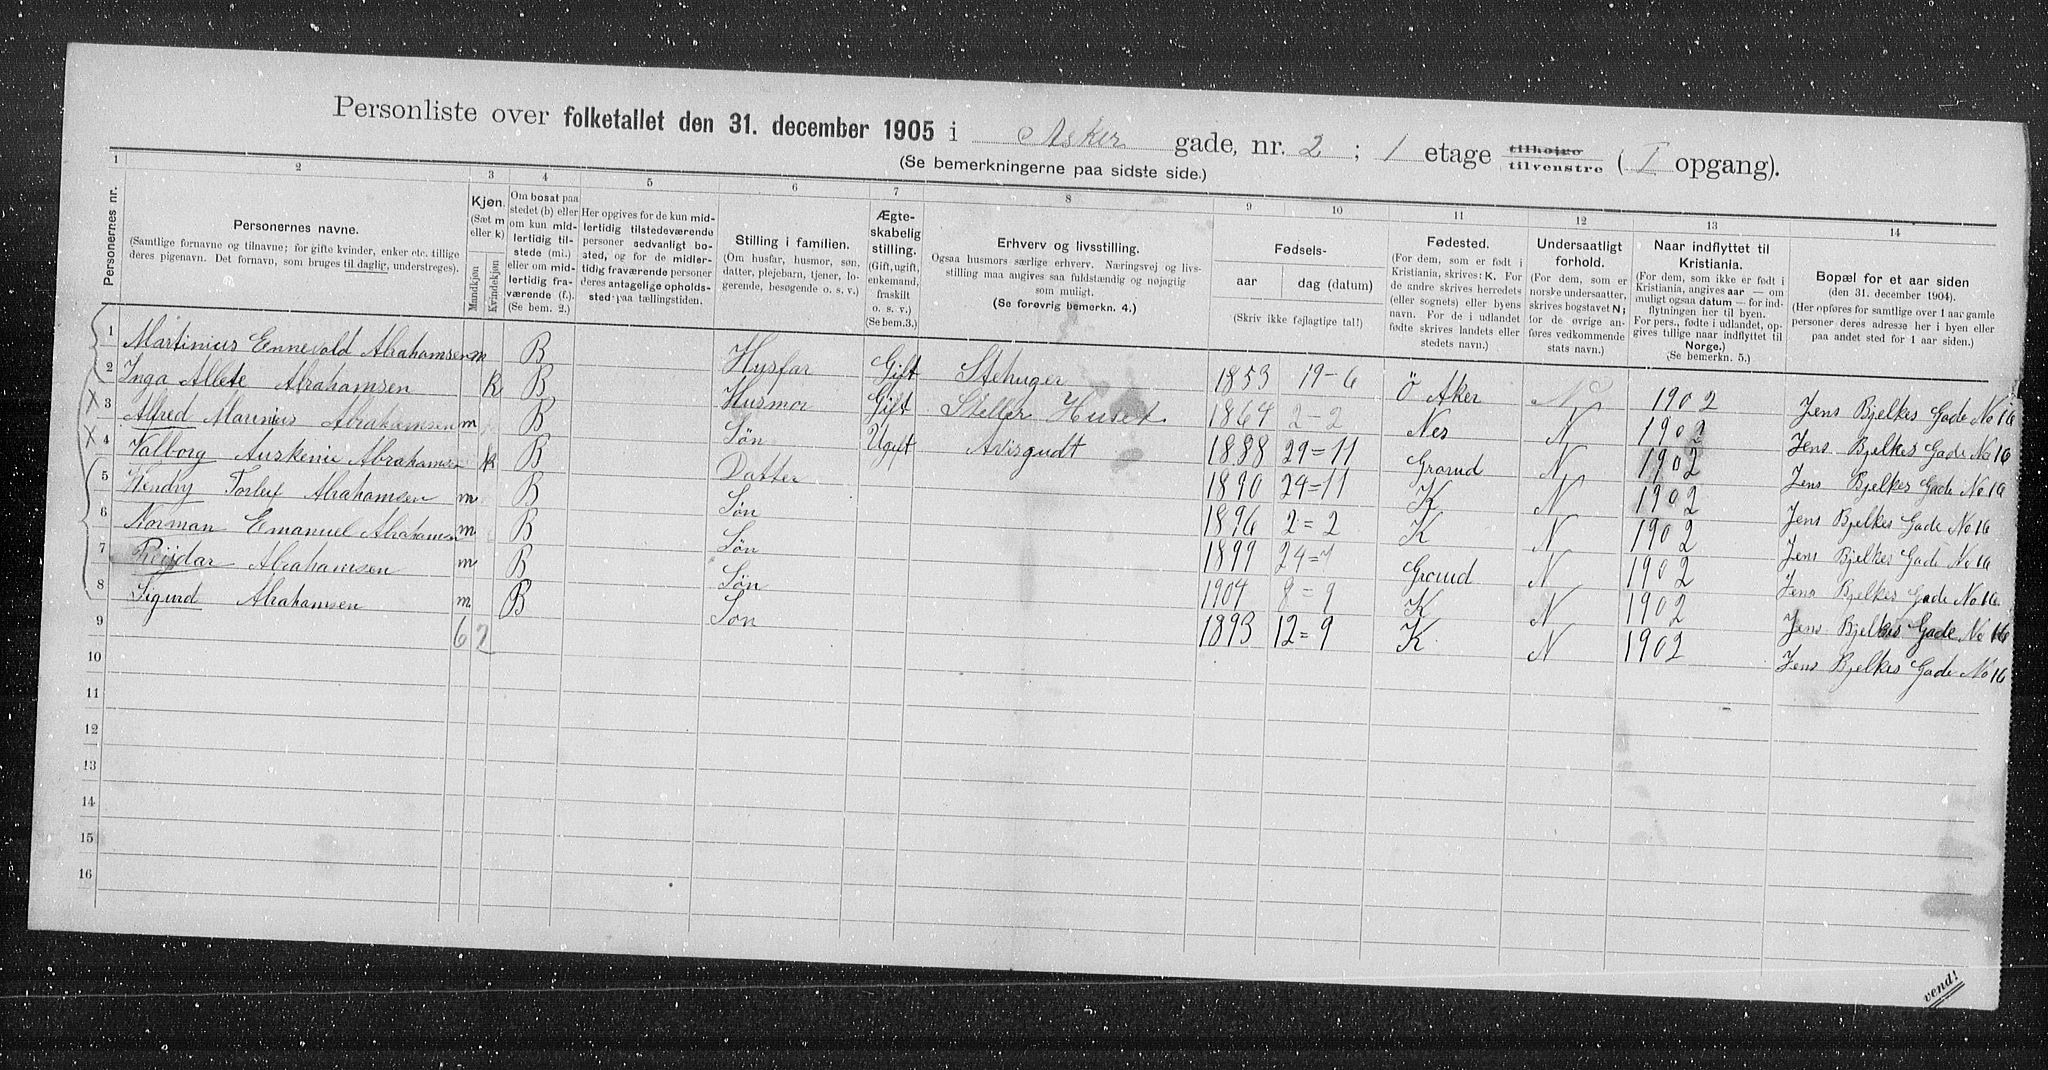 Personliste over folketallet den 31. december 1905 i Asker gade, nr. 2 ; 1 etage tilhøire tilvenstre ( I opgang).
(Se bemerkningerne paa sidste side.)
1 2 3 4 5 6 7 8 9 10 11 12 13 14
Personernes nr.
Personernes navne.
(Samtlige fornavne og tilnavne; for gifte kvinder, enker etc. tillige
deres pigenavn. Det fornavn, som bruges til daglig, understreges).
Kjøn.
(Sæt m
eller k)
Mandkjøn
Kvindekjøn
Om bosat paa
stedet (b) eller
om kun mid-
lertidig til-
stede (mi.)
eller om mid-
lertidig fra-
værende (f.)
(Se bem. 2.)
Her opgives for de kun mid-
lertidig tilstedeværende
personer sedvanligt bo-
sted, og for de midler-
tidig fraværende personer
deres antagelige opholds-
sted paa tællingstiden.
Stilling i familien.
(Om husfar, husmor, søn,
datter, plejebarn, tjener, lo-
gerende, besøgende o. s. v.)
Ægte-
skabelig
stilling.
(Gift, ugift,
enkemand,
fraskilt
o. s. v.)
(Se bem.3.)
Erhverv og livsstilling.
Ogsaa husmors særlige erhverv. Næringsvej og livs-
stilling maa angives saa fuldstændig og nøjagtig
som muligt.
(Se forøvrig bemerkn. 4.)
Fødsels-
aar
dag (datum)
(Skriv ikke fejlagtige tal!)
Fødested.
(For dem, som er født i
Kristiania, skrives: K. For
de andre skrives herredets
(eller sognets) eller byens
navn. For de i udlandet
fødte skrives landets eller
stedets navn.)
Undersaatligt
forhold.
(For dem, som er
norske undersaatter,
skrives bogstavet N;
for de øvrige an-
føres vedkommende
stats navn.)
Naar indflyttet til
Kristiania.
(For dem, som ikke er født i
Kristiania, angives aar — om
muligt ogsaa datum — for ind-
flytningen her til byen.
For pers., fødte i udlandet, op-
gives tillige naar indflyttet til
Norge.)
(Se bemerkn. 5.)
Bopæl for et aar siden
(den 31. december 1904).
(Her opføres for samtlige over 1 aar gamle
personer deres adresse her i byen eller
paa andet sted for 1 aar siden.)
1 Martinius Ennevold Abrahamsen m B Husfar Gift Stenhuger 1853 19-6 Ö Aker N 1902 Jens Bjelkes Gade No 16
2 Inga Allete Abrahamsen k B Husmor Gift Steller Huset 1864 2-2 Nes N 1902 Jens Bjelkes Gade No 16
3 Alfred Marinius Abrahamsen m B Søn Ugift Avisgudt 1888 29=11 Grorud N 1902 Jens Bjelkes Gade No 16
4 Valborg Abrahamsen k B Datter 1890 24=11 K N 1902 Jens Bjelkes Gade No 16
5 Hendry Torleif Abrahamsen m B Søn 1896 2=2 K N 1902 Jens Bjelkes Gade No 16
6 Norman Emanuel Abrahamsen m B Søn 1899 24=7 Grorud N 1902 Jens Bjelkes Gade No 16
7 Reijdar Abrahamsen m B Søn 1904 8=9 K N 1902 Jens Bjelkes Gade No 16
8 Sigurd Abrahamsen m B Søn 1893 12=9 K N 1902 Jens Bjelkes Gade No 16
9 6 2
10
11
12
13
14
15
16
vend!